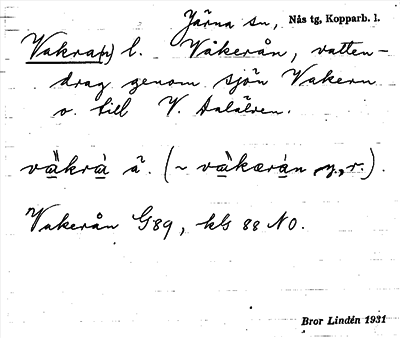 Järna sn, Nås tg, Kopparb. l.
Vakra(n) l. Våkerån, vatten-
drag genom sjön Vakern
o. till V. Dalälven.
va̍krà å. (~ va̍kærán y., r.).
Vakerån G89, kbl 88 NO.
Bror Lindén 1931